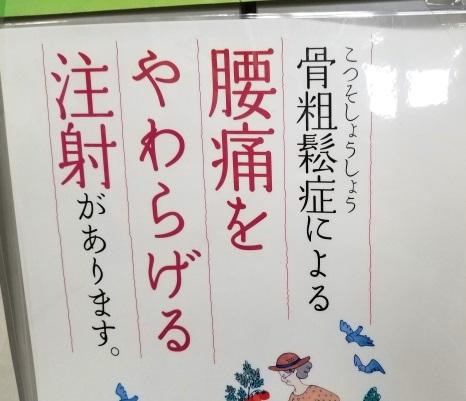 こつそしょうしょう
骨粗鬆症による
腰痛を
やわらげる
注射があります。